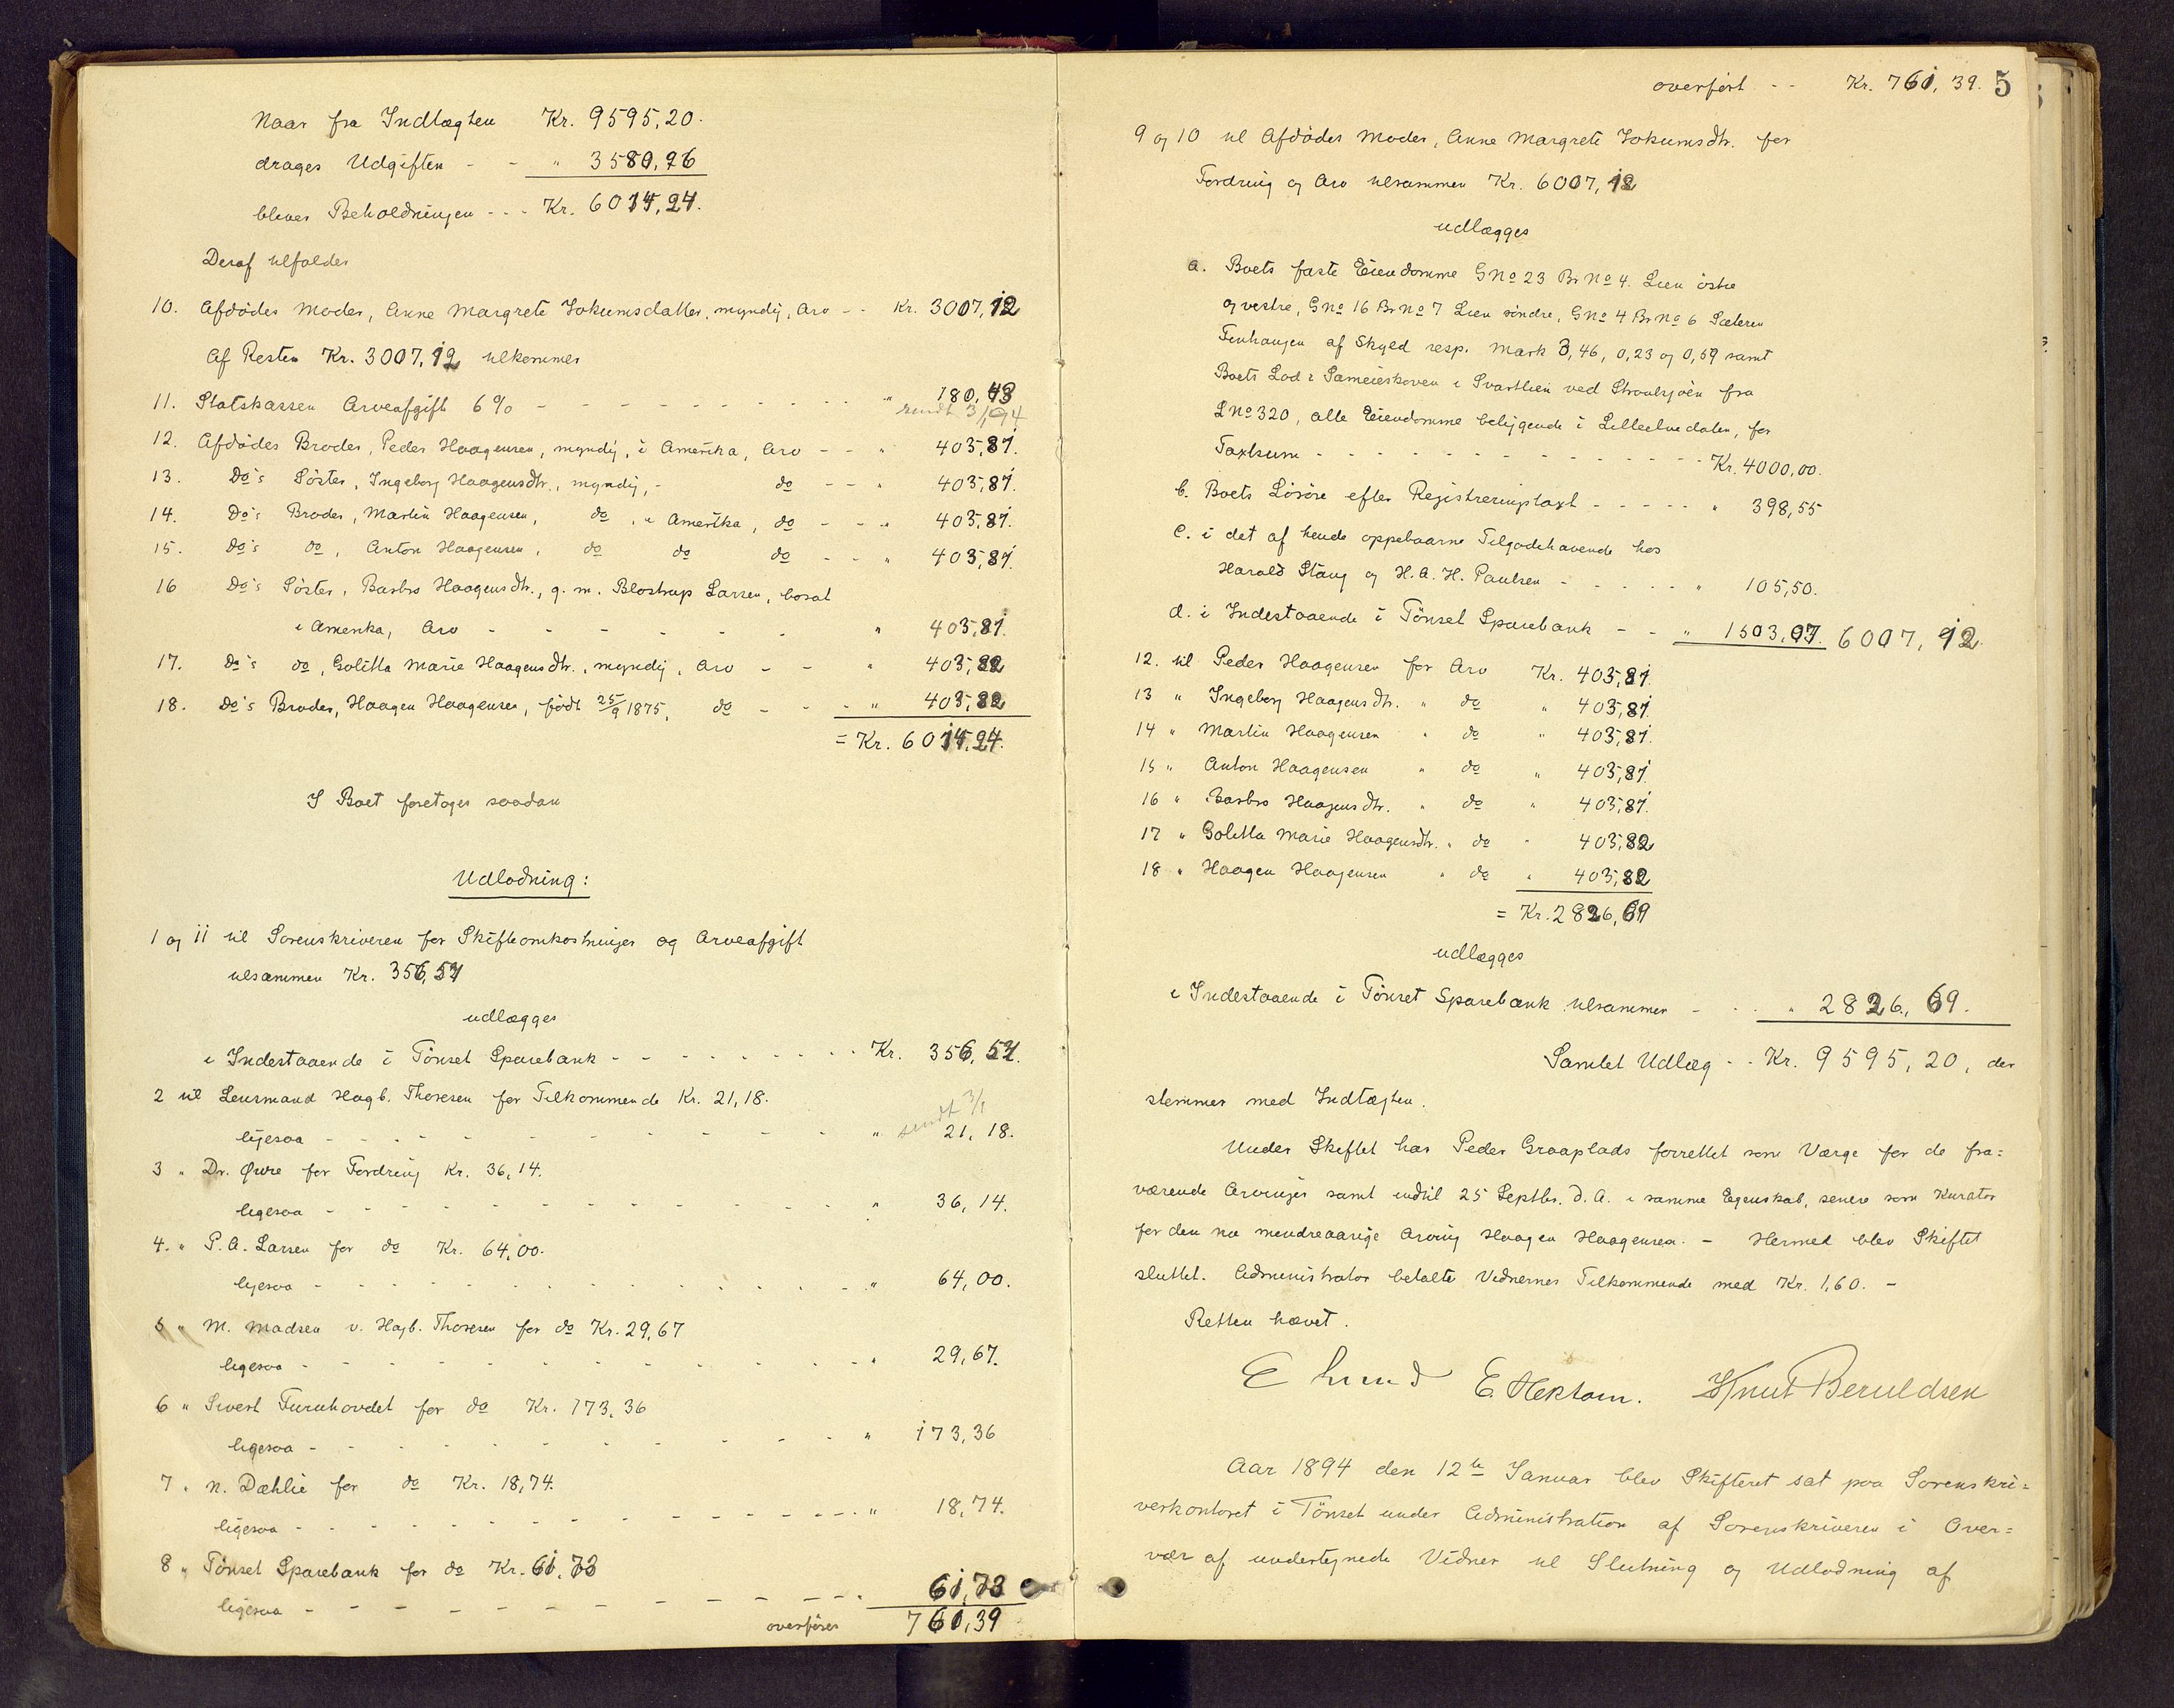 Naar fra Indtægten Kr. 9595,20.
drages Udgiften - - " 3580,96
bliver Beholdningen - - - Kr. 6014,24.
Deraf tilfalder
10. Afdødes Moder, Anne Margrete Jokumsdatter, myndig, Arv - - Kr. 3007,12
Af Resten Kr. 3007,12 tilkommer
11. Statskassen Arveafgift 6% - - - " 180,43
sendt 3/1 94
12. Afdødes Broder, Peder Haagensen, myndig, i Amerika, Arv - - " 403,81.
13. Do's Søster, Ingeborg Haagensdtr., myndig, - do - - " 403,81.
14. Do's Broder, Martin Haagensen, do, i Amerika, do - - " 403,81.
15. do's do, Anton Haagensen, do do do - - " 403,81.
16 Do's Søster, Barbro Haagensdtr., g. m. Blostrup Larsen, bosat
i Amerika, Arv - - - " 403,81.
17. do's do, Golitta Marie Haagensdtr., myndig, Arv - - " 403,82
18. Do's Broder, Haagen Haagensen, født 25/9 1875, do - - " 403,82
= Kr. 6014,24.
I Boet foretoges saadan
Udlodning:
1 og 11 til Sorenskriveren for Skifteomkostninger og Arveafgift
tilsammen Kr. 356,57
udlægges
i Indestaaende i Tönset Sparebank - - - Kr. 356,57.
2 til Lensmand Hagb. Thoresen for Tilkommende Kr. 21,18.
sendt 3/1
ligesaa - - - " 21,18.
3 " Dr. Øvre for Fordring Kr. 36,14.
ligesaa - - - " 36,14.
4. " P. A. Larsen for do Kr. 64,00.
ligesaa - - - " 64,00.
5 " M. Madsen v. Hagb. Thoresen for do Kr. 29,67
ligesaa - - - " 29,67.
6 " Sivert Furuhovdet for do Kr. 173,36
ligesaa - - - " 173,36
7 " N. Dæhlie for do Kr. 18,74.
ligesaa - - - " 18,74.
8 " Tönset Sparebank for do Kr. 61,73
ligesaa - - - 61,73
overføres 761,39
overført - - Kr. 761,39. 5
9 og 10 til Afdödes Moder, Anne Margrete Jokumsdtr. for
Fordring og Arv tilsammen Kr. 6007,12
udlægges
a. Boets faste Eiendomme GNo 23 BrNo 4. Lien östre
og vestre, GNo 16 BrNo 7 Lien söndre, GNo 4 BrNo 6 Sæteren
af Skyld resp. Mark 3,46, 0,23 og 0,59 samt
Boets Lod i Sameieskoven i Svartlien ved fra
LNo 320, alle Eiendomme beliggende i Lilleelvedalen, for
Taxtsum - - - Kr. 4000,00.
b. Boets Lösöre efter Registreringstaxt - - - " 398,55
c. i det af hende oppebaarne Tilgodehavende hos
Harald Stang og H. A. H. Paulsen - - - " 105,50.
d. i Indestaaende i Tönset Sparebank - - " 1503,07. 6007,12.
12. til Peder Haagensen for Arv Kr. 403,81.
13 " Ingeborg Haagensdtr. " do " 403,81.
14 " Martin Haagensen " do " 403,81.
15 " Anton Haagensen " do " 403,81.
16 " Barbro Haagensdtr. " do " 403,81.
17 " Golitta Marie Haagensdtr. " do " 403,82
18 " Haagen Haagensen " do " 403,82
= Kr. 2826,69
udlægges
i Indestaaende i Tönset Sparebank tilsammen - - - " 2826,69.
Samlet Udlæg - - Kr. 9595,20, der
stemmer med Indtægten.
Under Skiftet har Peder Graaplads forrettet som Værge for de fra=
værende Arvinger samt indtil 25 Septbr. d. A. i samme Egenskab, senere som Kurator
for den nu mindreaarige Arving Haagen Haagensen. - Hermed blev Skiftet
sluttet. Administrator betalte Vidnernes Tilkommende med Kr. 1,60. -
Retten hævet.
E Lund E. Hektoen. Knut Beruldsen
Aar 1894 den 12te Januar blev Skifteret sat paa Sorenskri=
verkontoret i Tönset under Administration af Sorenskriveren i Over=
vær af undertegnede Vidner til Slutning og Udlodning af